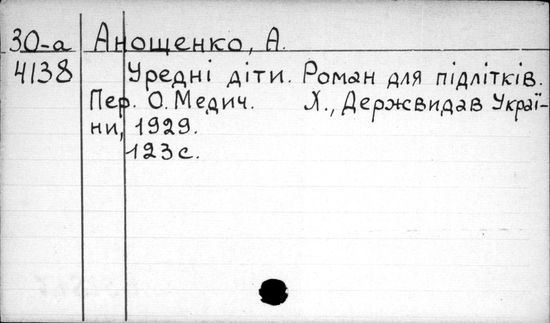 30-а Анощенко, А.
4138 Уредні діти. Роман для підлітків.
Пер. О. Медич. Х., Держвидав Украї-
ни, 1929.
123 с.